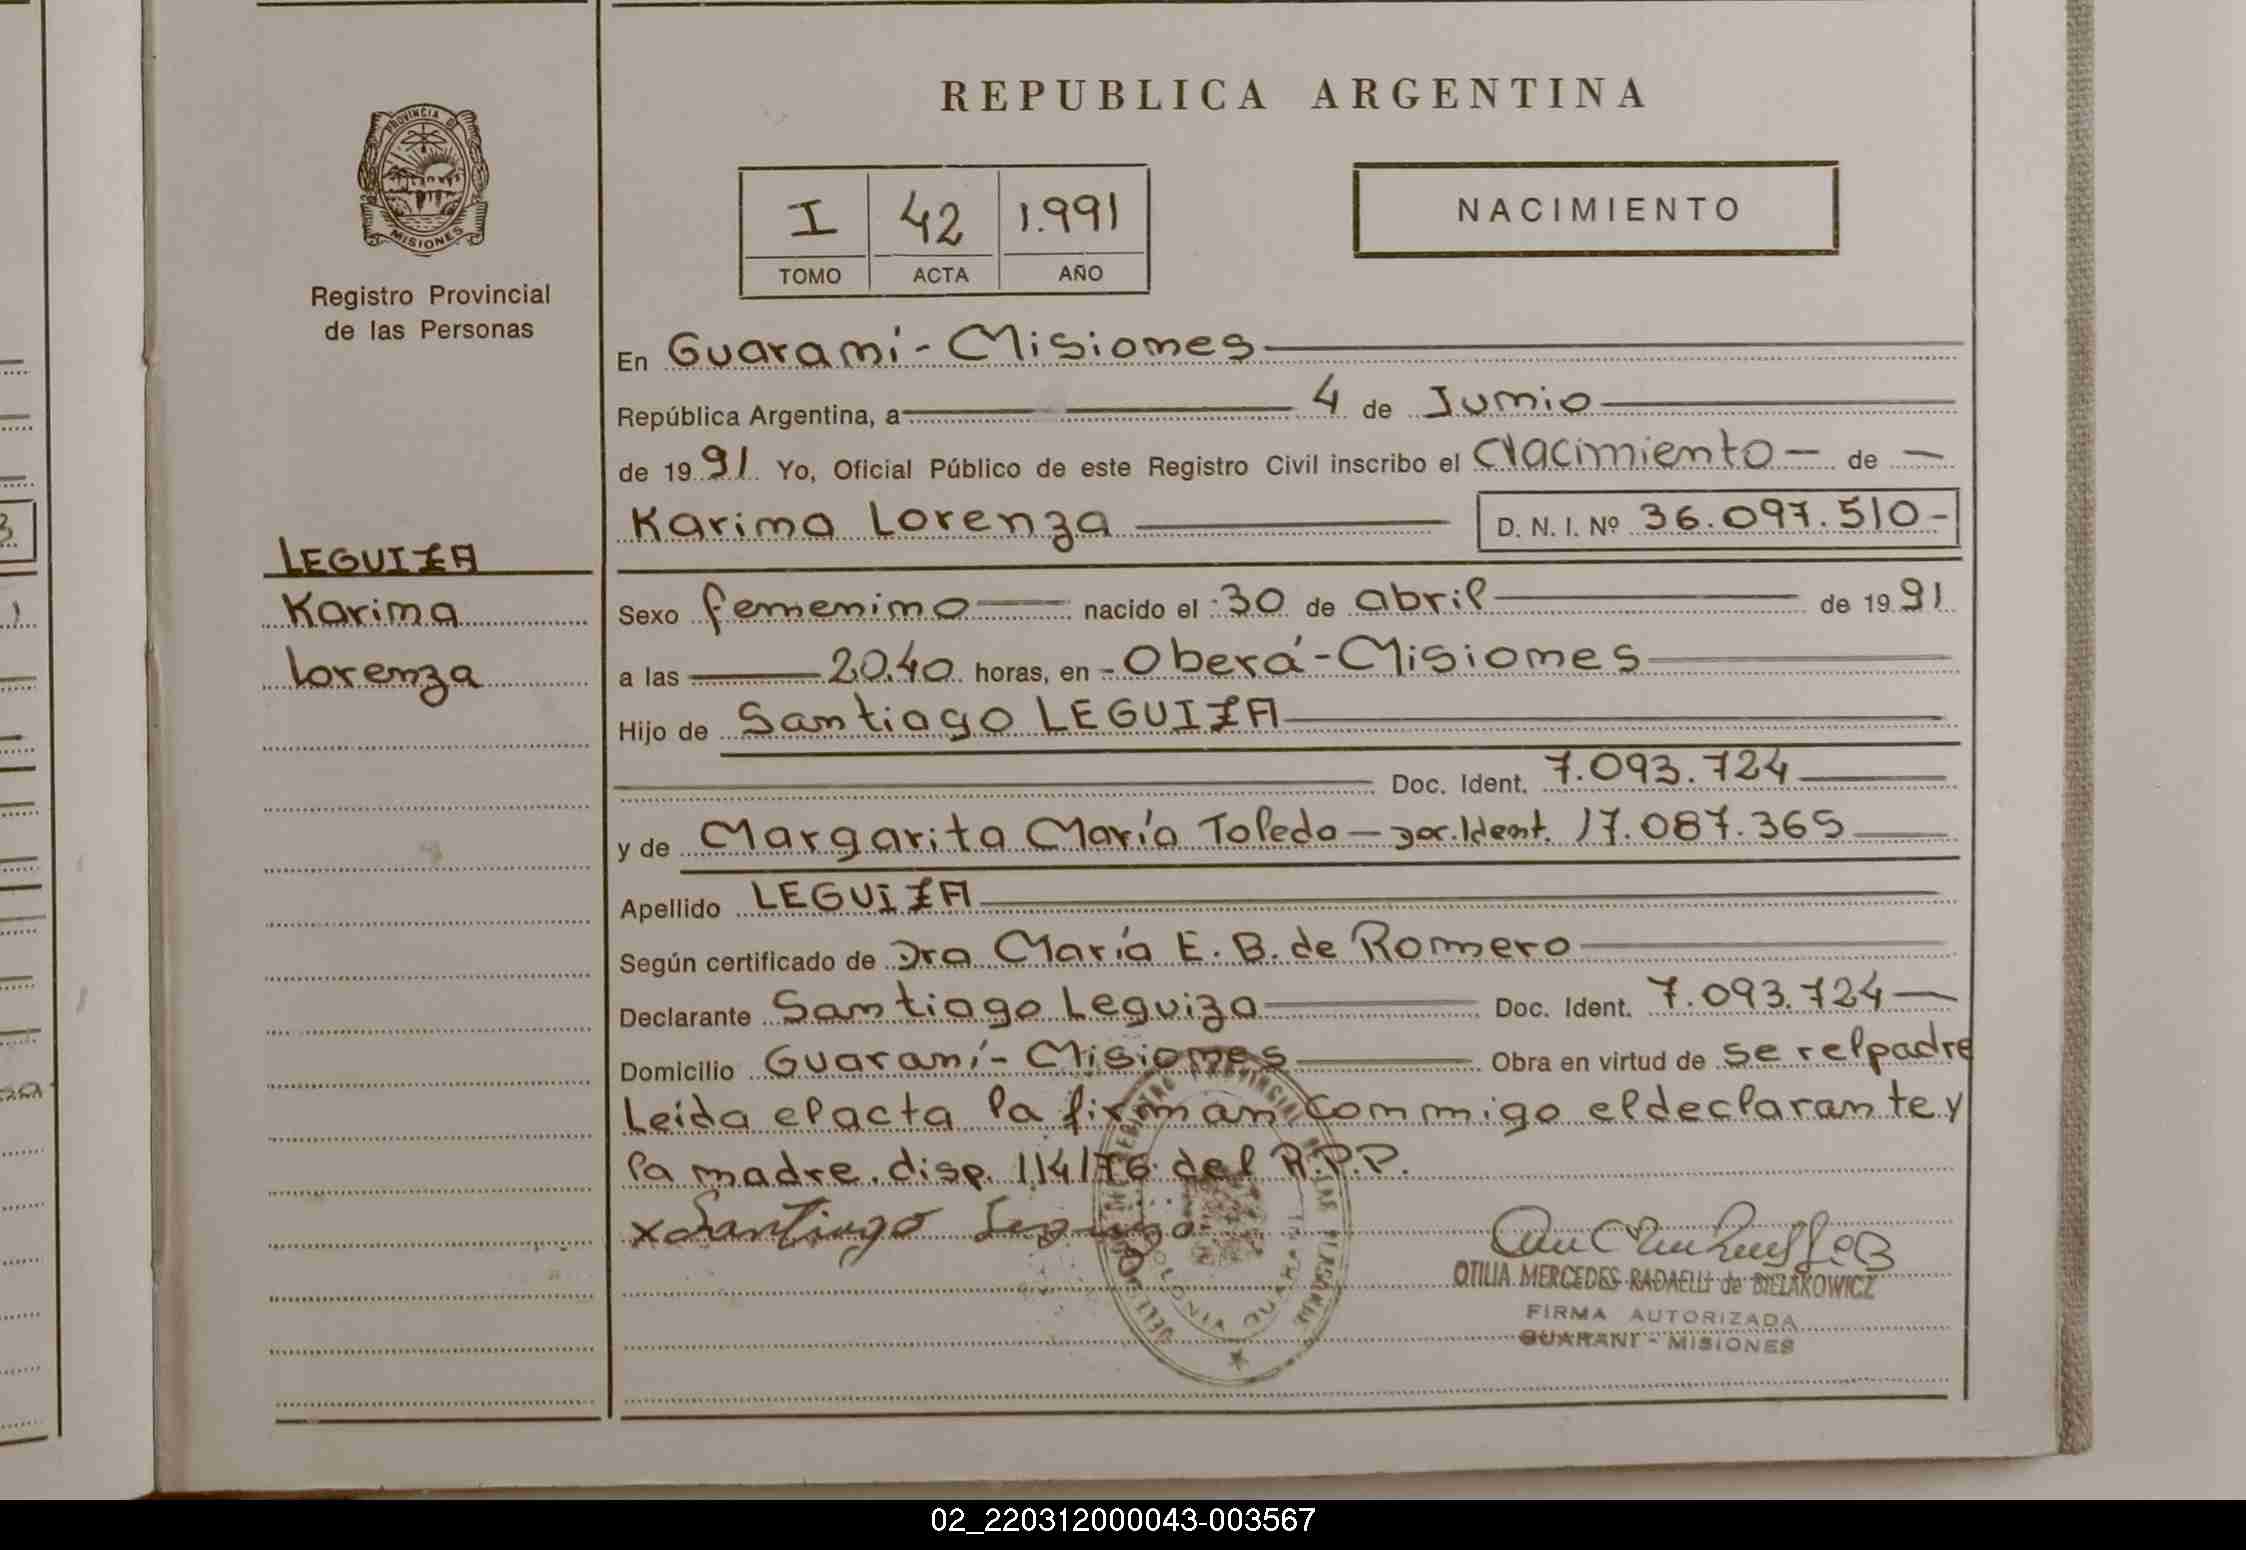 REPUBLICA ARGENTINA
PROVINCIA DE
MISIONES
Registro Provincial
de las Personas
I 42 1.991
TOMO ACTA AÑO
NACIMIENTO
En Guaraní - Misiones
República Argentina, a 4 de Junio
de 1991 Yo, Oficial Público de este Registro Civil inscribo el Nacimiento - de -
Karina Lorenza D. N. I. Nº 36.097.510-
LEGUIZA
Karina
Lorenza
Sexo femenino nacido el 30 de abril de 1991
a las 20.40 horas, en - Oberá - Misiones
Hijo de Santiago LEGUIZA
Doc. Ident. 7.093.724
y de Margarita María Toledo - Doc. Ident. 17.087.365
Apellido LEGUIZA
Según certificado de Dra María E. B. de Romero
Declarante Santiago Leguiza Doc. Ident. 7.093.724
Domicilio Guaraní - Misiones Obra en virtud de ser el padre
Leída el acta la firman conmigo el declarante y
la madre. disp. 114/76 del R.P.P.
x Santiago Leguiza
OTILIA MERCEDES RADAELLI de BIELAKOWICZ
FIRMA AUTORIZADA
GUARANI - MISIONES
02_220312000043-003567